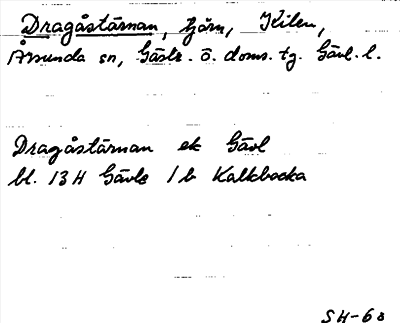 Dragåstärnan, tjärn, Kilen,
Årsunda sn, Gästr. ö. doms. tg. Gävl. l.
Dragåstärnan ek Gävl
bl. 13 H Gävle 1 b Kalkbacka
SH-68